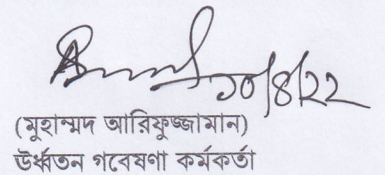 ১০/৪/২২
(মুহাম্মদ আরিফুজ্জামান)
উর্ধ্বতন গবেষণা কর্মকর্তা